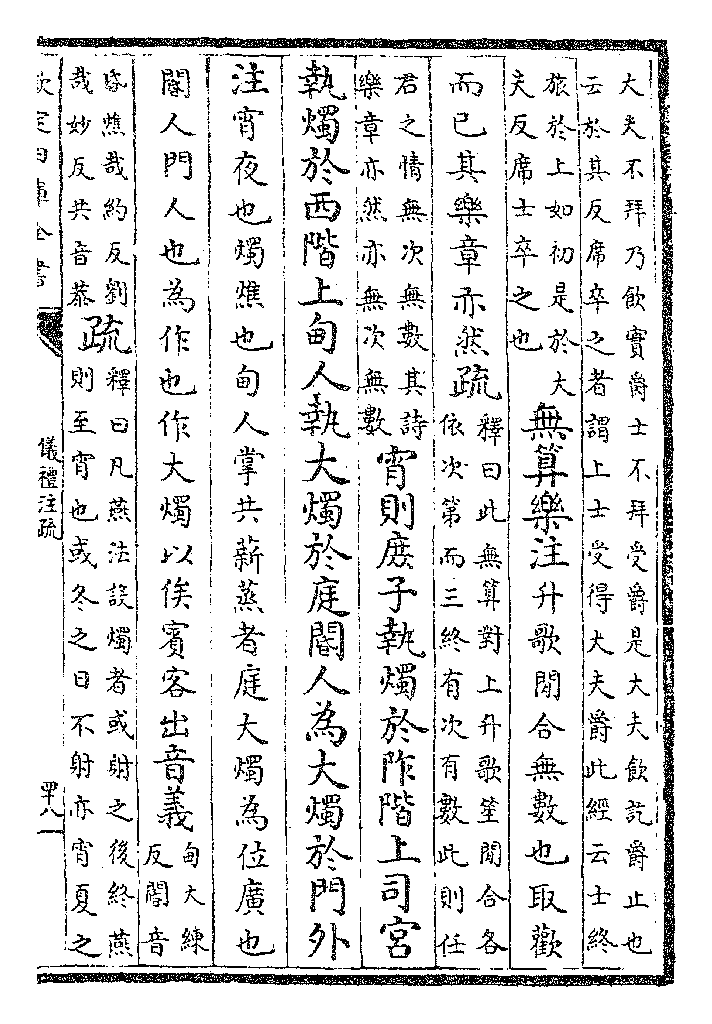 大夫不拜乃飲實爵士不拜受爵是大夫飲訖爵止也
云於其反席卒之者謂上士受得大夫爵此經云士終
旅於上如初是於大
夫反席士卒之也
無算樂注升歌間合無數也取歡
而已其樂章亦然疏
釋曰此無算對上升歌笙間合各
依次第而三終有次有數此則任
君之情無次無數其詩
樂章亦然亦無次無數
宵則庶子執燭於阼階上司宮
執燭於西階上甸人執大燭於庭閽人為大燭於門外
注宵夜也燭燋也甸人掌共薪蒸者庭大燭為位廣也
閽人門人也為作也作大燭以俟賓客出音義
甸大練
反閽音
昏燋哉約反劉
哉妙反共音恭
疏
釋曰凡燕法設燭者或射之後終燕
則至宵也或冬之日不射亦宵夏之
欽定四庫全書
儀禮注疏
四十八